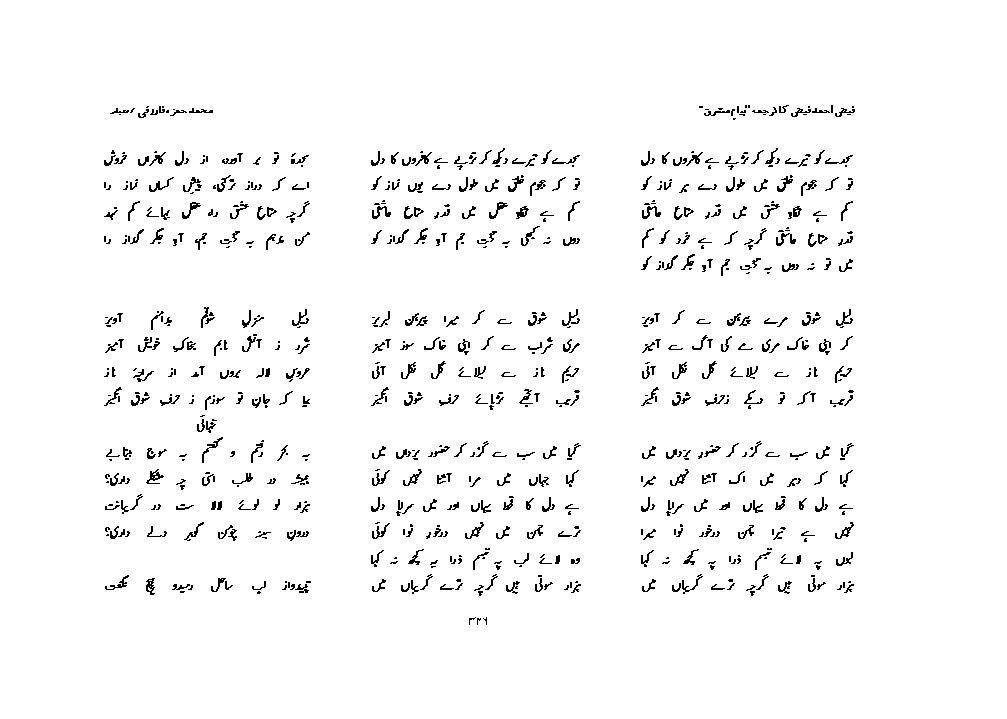 فیض احمد فیض کا ترجمہ "پیامِ مشرق"
محمد حمزہ فاروقی / صبار
سجدے کو تیرے دیکھ کر تڑپے ہے کافروں کا دل
تو کہ ہجومِ خلق میں طول دے ہر نماز کو
کم ہے نگاہِ عشق میں قدرِ متاعِ عاشقی
قدرِ متاعِ عاشقی گرچہ کہ ہے خرد کو کم
میں تو نہ دوں بہ تختِ جم آہِ جگر گداز کو
سجدے کو تیرے دیکھ کر تڑپے ہے کافروں کا دل
تو کہ ہجومِ خلق میں طول دے یوں نماز کو
کم ہے نگاہِ عقل میں قدرِ متاعِ عاشقی
دوں نہ کبھی بہ تختِ جم آہِ جگر گداز کو
سجدۂ تو بر آورد از دل کافراں خروش
اے کہ دراز تر کنی پیشِ کساں نماز را
گرچہ متاعِ عشق را عقل بہائے کم نہد
من ندہم بہ تختِ جم آہِ جگر گداز را
دلیلِ شوق مرے پیرہن سے کر آویز
کر اپنی خاک مری مے کی آگ سے آمیز
حریمِ ناز سے لیلائے گل نکل آئی
قریب آ کہ تو دیکھے زحرفِ شوق انگیز
دلیلِ شوق سے کر میرا پیرہن لبریز
مری شراب سے کر اپنی خاک سوز آمیز
حریمِ ناز سے لیلائے گل نکل آئی
قریب آ تجھے تڑپائے حرفِ شوق انگیز
دلیلِ منزلِ شوقم بدامنم آویز
شرر ز آتشِ نابم بخاکِ خویش آمیز
عروسِ لالہ بروں آمد از سراچۂ ناز
بیا کہ جانِ تو سوزم ز حرفِ شوق انگیز
تنہائی
گیا میں سب سے گزر کر حضورِ یزداں میں
کہا کہ دہر میں اک آشنا نہیں میرا
ہے دل کا قحط یہاں اور میں سراپا دل
نہیں ہے تیرا چمن درخورِ نوا میرا
لبوں پہ لائے تبسم ذرا پہ کچھ نہ کہا
ہزار موتی ہیں گرچہ ترے گریباں میں
گیا میں سب سے گزر کر حضورِ یزداں میں
کہا جہاں میں مرا آشنا نہیں کوئی
ہے دل کا قحط یہاں اور میں سراپا دل
ترے چمن میں نہیں درخورِ نوا کوئی
وہ لائے لب پہ تبسم ذرا پہ کچھ نہ کہا
ہزار موتی ہیں گرچہ ترے گریباں میں
بہ بحر رفتم و گفتم بہ موجِ بیتابے
ہمیشہ در طلب استی چہ مشکلے داری؟
ہزار لولوئے لالا ست در گریبانت
درونِ سینہ چومن گہرِ دلے داری؟
تپیدواز لبِ ساحل رمیدو ہیچ نگفت
۳۲۶